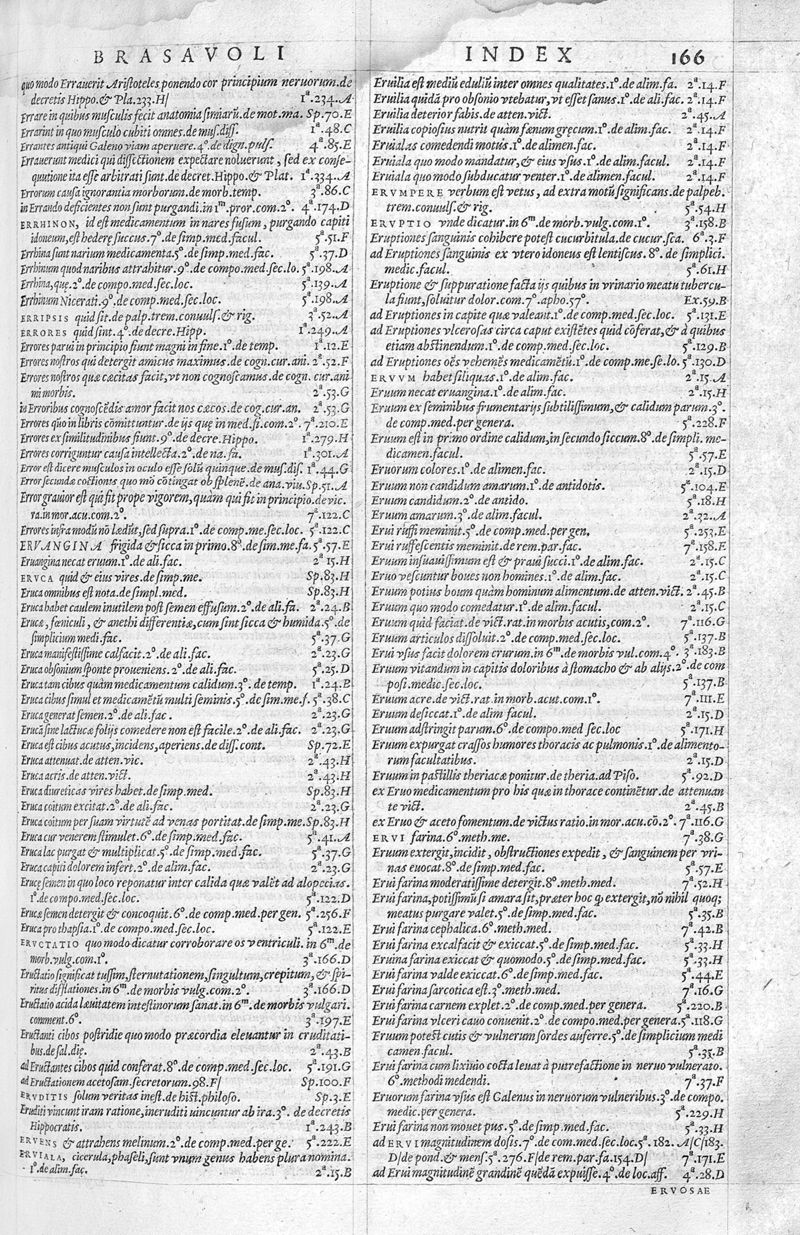 BRASAVOLI INDEX 166
quo modo Errauerit Aristoteles ponendo cor principium neruorum.de
decretis Hippo.& Pla.233.H/ 1ª.234.A
Errare in quibus musculis fecit anatomia simiarū.de mot.ma. Sp.70.E
Errarint in quo musculo cubiti omnes.de mus.diss. 1ª.48.C
Errantes antiqui Galeno viam aperuere.4º.de dign.puls. 4ª.85.E
Errauerunt medici qui dissectionem expectare noluerunt, sed ex conse-
quutione ita esse arbitrati sunt.de decret.Hippo.& Plat. 1ª.334.A
Errorum causa ignorantia morborum.de morb.temp. 3ª.86.C
in Errando deficientes non sunt purgandi.in 1ᵐ.pror.com.2º. 4ª.174.D
ERRHINON, id est medicamentum in nares fusum, purgando capiti
idoneum,est hederę succus.7º.de simp.med.facul. 5ª.51.F
Errhina sunt narium medicamenta.5º.de simp.med.fac. 5ª.37.D
Errhinum quod naribus attrahitur.9º.de compo.med.sec.lo. 5ª.198.A
Errhina,quę.2º.de compo.med.sec.loc. 5ª.139.A
Errhinum Nicerati.9º.de comp.med.sec.loc. 5ª.198.A
ERRIPSIS quid sit.de palp.trem.conuuls.& rig. 3ª.52.A
ERRORES quid sint.4º.de decre.Hipp. 1ª.249.A
Errores parui in principio fiunt magni in fine.1º.de temp. 1ª.12.E
Errores nostros qui detergit amicus maximus.de cogn.cur.ani. 2ª.52.F
Errores nostros quæ cæcitas facit,vt non cognoscamus.de cogn. cur.ani
mi morbis. 2ª.53.G
in Erroribus cognoscēdis amor facit nos cæcos.de cog.cur.an. 2ª.53.G
Errores quo in libris cōmittuntur.de ijs quę in med.fi.com.2º. 7ª.210.E
Errores ex similitudinibus fiunt.9º.de decre.Hippo. 1ª.279.H
Errores corriguntur causa intellecta.2º.de na.fa. 1ª.301.A
Error est dicere musculos in oculo esse solū quinque.de mus.dis. 1ª.44.G
Error secundæ coctionis quo mō cōtingat ob splenē.de ana.viu.Sp.51.A
Error grauior est qui fit prope vigorem,quàm qui fit in principio.de vic.
ra.in mor.acu.com.2º. 7ª.122.C
Errores infra modū nō lædūt,sed supra.1º.de comp.me.sec.loc. 5ª.122.C
ERVANGINA frigida & sicca in primo.8º.de sim.me.fa. 5ª.57.E
Eruangina necat eruum.1º.de ali.fac. 2ª.15.H
ERVCA quid & eius vires.de simp.me. Sp.83.H
Eruca omnibus est nota.de simpl.med. Sp.83.H
Eruca habet caulem inutilem post semen effusum.2º.de ali.fa. 2ª.24.B
Erucæ, fœniculi, & anethi differentiæ,cum sint sicca & humida.5º.de
simplicium medi.fac. 5ª.37.G
Eruca manifestissime calfacit.2º.de ali.fac. 2ª.23.G
Eruca obsonium sponte proueniens.2º.de ali.fac. 5ª.25.D
Eruca tam cibus quàm medicamentum calidum.3º.de temp. 1ª.24.B
Eruca cibus simul et medicamētū multi seminis.5º.de sim.me.f. 5ª.38.C
Eruca generat semen.2º.de ali.fac. 2ª.23.G
Erucā sine lactucæ folijs comedere non est facile.2º.de ali.fac. 2ª.23.G
Eruca est cibus acutus,incidens,aperiens.de diss.cont. Sp.72.E
Eruca attenuat.de atten.vic. 2ª.43.H
Eruca acris.de atten.vict. 2ª.43.H
Eruca diureticas vires habet.de simp.med. Sp.83.H
Eruca coitum excitat.2º.de ali.fac. 2ª.23.G
Eruca coitum per suam virtutē ad venas portitat.de simp.me.Sp.83.H
Eruca cur venerem stimulet.6º.de simp.med.fac. 5ª.41.A
Eruca lac purgat & multiplicat.5º.de simp.med.fac. 5ª.37.G
Eruca capiti dolorem infert.2º.de alim.fac. 2ª.23.G
Erucę semen in quo loco reponatur inter calida quæ valēt ad alopecias.
1º.de compo.med.sec.loc. 5ª.122.D
Erucæ semen detergit & concoquit.6º.de comp.med.per gen. 5ª.256.F
Eruca pro thapsia.1º.de compo.med.sec.loc. 5ª.122.E
ERVCTATIO quo modo dicatur corroborare os ventriculi. in 6ᵐ.de
morb.vulg.com.1º. 3ª.166.D
Eructatio significat tussim,sternutationem,singultum,crepitum,& spi-
ritus difflationes.in 6ᵐ.de morbis vulg.com.2º. 3ª.166.D
Eructatio acida læuitatem intestinorum sanat.in 6ᵐ.de morbis vulgari.
comment.6º. 3ª.197.E
Eructanti cibos postridie quo modo præcordia eleuantur in cruditati-
bus.de sal.dię. 2ª.43.B
ad Eructantes cibos quid conferat.8º.de comp.med.sec.loc. 5ª.191.G
ad Eructationem acetosam.secretorum.98.F/ Sp.100.F
ERVDITIS solum veritas inest.de hist.philoso. Sp.3.E
Eruditi vincunt iram ratione,ineruditi vincuntur ab ira.3º. de decretis
Hippocratis. 1ª.243.B
ERVENS & attrahens melinum.2º.de comp.med.per ge. 5ª.222.E
ERVIALA, cicerula,phaseli,sunt vnum genus habens plura nomina.
1º.de alim.fac. 2ª.15.B
Eruilia est mediū eduliū inter omnes qualitates.1º.de alim.fa. 2ª.14.F
Eruilia quidā pro obsonio vtebatur,vt esset sanus.1º.de ali.fac. 2ª.14.F
Eruilia deterior fabis.de atten.vict. 2ª.45.A
Eruilia copiosius nutrit quàm fænum gręcum.1º.de alim.fac. 2ª.14.F
Eruialas comedendi motus.1º.de alimen.fac. 2ª.14.F
Eruiala quo modo mandatur,& eius vsus.1º.de alim.facul. 2ª.14.F
Eruiala quo modo subducatur venter.1º.de alimen.facul. 2ª.14.F
ERVMPERE verbum est vetus, ad extra motū significans.de palpeb.
trem.conuuls.& rig. 5ª.54.H
ERVPTIO vnde dicatur.in 6ᵐ.de morb.vulg.com.1º. 3ª.158.B
Eruptiones sanguinis cohibere potest cucurbitula.de cucur.sca. 6ª.3.F
ad Eruptiones sanguinis ex vtero idoneus est lentiscus. 8º. de simplici.
medic.facul. 5ª.61.H
Eruptione & suppuratione facta ijs quibus in vrinario meatu tubercu-
la fiunt,soluitur dolor.com.7º.apho.57º. Ex.59.B
ad Eruptiones in capite quæ valeant.1º.de comp.med.sec.loc. 5ª.131.E
ad Eruptiones vlcerosas circa caput existētes quid cōferat,& à quibus
etiam abstinendum.1º.de comp.med.sec.loc. 5ª.129.B
ad Eruptiones oēs vehemēs medicamētū.1º.de comp.me.se.lo. 5ª.130.D
ERVVM habet siliquas.1º.de alim.fac. 2ª.15.A
Eruum necat eruangina.1º.de alim.fac. 2ª.15.H
Eruum ex seminibus frumentarijs subtilissimum,& calidum parum.3º.
de comp.med.per genera. 5ª.228.F
Eruum est in primo ordine calidum,in secundo siccum.8º.de simpli. me-
dicamen.facul. 5ª.57.E
Eruorum colores.1º.de alimen.fac. 2ª.15.D
Eruum non candidum amarum.1º.de antidotis. 5ª.104.E
Eruum candidum.2º.de antido. 5ª.18.H
Eruum amarum.3º.de alim.facul. 2ª.32.A
Erui ruffi meminit.5º.de comp.med.per gen. 5ª.253.E
Erui ruffescentis meminit.de rem.par.fac. 7ª.158.E
Eruum insuauissimum est & praui succi.1º.de alim.fac. 2ª.15.C
Eruo vescuntur boues non homines.1º.de alim.fac. 2ª.15.C
Eruum potius boum quàm hominum alimentum.de atten.vict. 2ª.45.B
Eruum quo modo comedatur.1º.de alim.facul. 2ª.15.C
Eruum quid faciat.de vict.rat.in morbis acutis,com.2º. 7ª.116.G
Eruum articulos dissoluit.2º.de comp.med.sec.loc. 5ª.137.B
Erui vsus facit dolorem crurum.in 6ᵐ.de morbis vul.com.4º. 3ª.183.B
Eruum vitandum in capitis doloribus à stomacho & ab alijs.2º.de com
posi.medic.sec.loc. 5ª.137.B
Eruum acre.de vict.rat.in morb.acut.com.1º. 7ª.111.E
Eruum desiccat.1º.de alim facul. 2ª.15.D
Eruum adstringit parum.6º.de comp.med sec.loc 5ª.171.H
Eruum expurgat crassos humores thoracis ac pulmonis.1º.de alimento-
rum facultatibus. 2ª.15.D
Eruum in pastillis theriacæ ponitur.de theria.ad Piso. 5ª.92.D
ex Eruo medicamentum pro his quæ in thorace continētur.de attenuan
te vict. 2ª.45.B
ex Eruo & aceto fomentum.de victus ratio.in mor.acu.cō.2º. 7ª.116.G
ERVI farina.6º.meth.me. 7ª.38.G
Eruum extergit,incidit, obstructiones expedit, & sanguinem per vri-
nas euocat.8º.de simp.med.fac. 5ª.57.E
Erui farina moderatissime detergit.8º.meth.med. 7ª.52.H
Erui farina,potissimū si amara sit,præter hoc ꝙ extergit,nō nihil quoq;
meatus purgare valet.5º.de simp.med.fac. 5ª.35.B
Erui farina cephalica.6º.meth.med. 7ª.42.B
Erui farina excalfacit & exiccat.5º.de simp.med.fac. 5ª.33.H
Eruina farina exiccat & quomodo.5º.de simp.med.fac. 5ª.33.H
Erui farina valde exiccat.6º.de simp.med.fac. 5ª.44.E
Erui farina sarcotica est.3º.meth.med. 7ª.16.G
Erui farina carnem explet.2º.de comp.med.per genera. 5ª.220.B
Erui farina vlceri cauo conuenit.2º.de compo.med.per genera.5ª.118.G
Eruum potest cutis & vulnerum sordes auferre.5º.de simplicium medi
camen.facul. 5ª.35.B
Erui farina cum lixiuio cocta leuat à putrefactione in neruo vulnerato.
6º.methodi medendi. 7ª.37.F
Eruorum farina vsus est Galenus in neruorum vulneribus.3º.de compo.
medic.per genera. 5ª.229.H
Erui farina non mouet pus.5º.de simp.med.fac. 5ª.33.H
ad ERVI magnitudinem dosis.7º.de com.med.sec.loc.5ª.182.A/C/183.
D/de pond.& mens.5ª.276.F/de rem.par.fa.154.D/ 7ª.171.E
ad Erui magnitudinē grandinē quēdā expuisse.4º.de loc.aff. 4ª.28.D
ERVOSAE